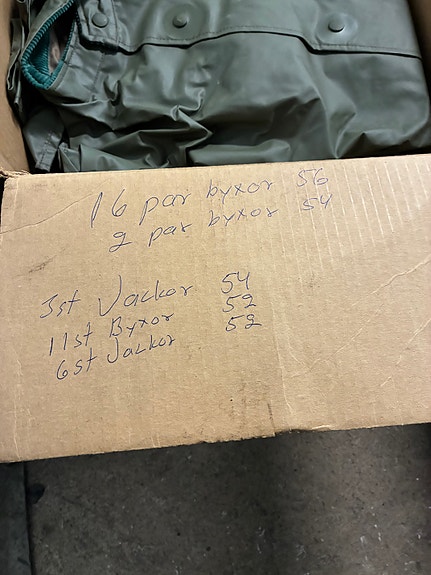 16 par byxor 56
2 par byxor 54
3st Jackor 54
11st Byxor 52
6st Jackor 52